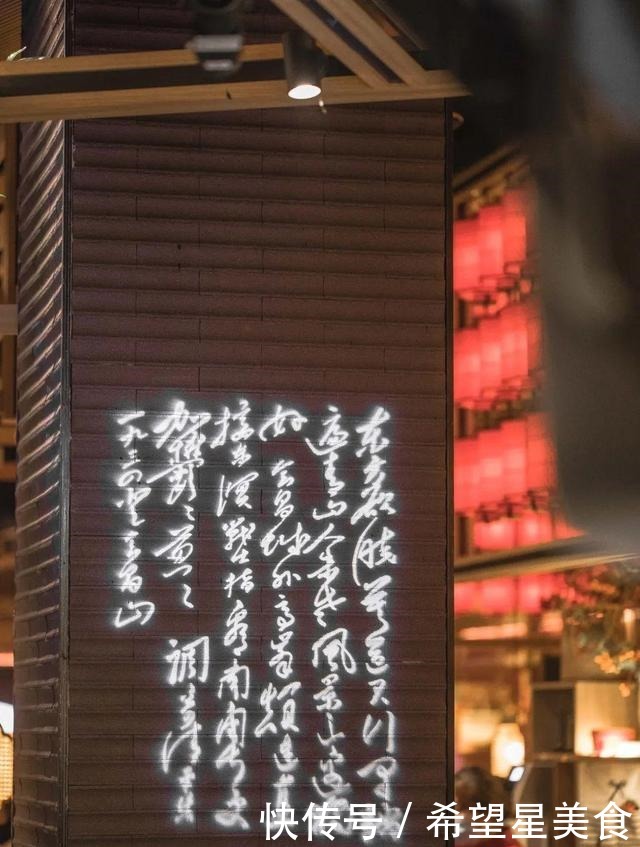 东方欲曉莫道君行早
遍青山人未老風景这边独
好会昌城外高峰顛连直
接东溟戰士指看南粤更
加鬱鬱葱葱調寄清平乐
一九三四登会昌山
快传号 / 希望星美食